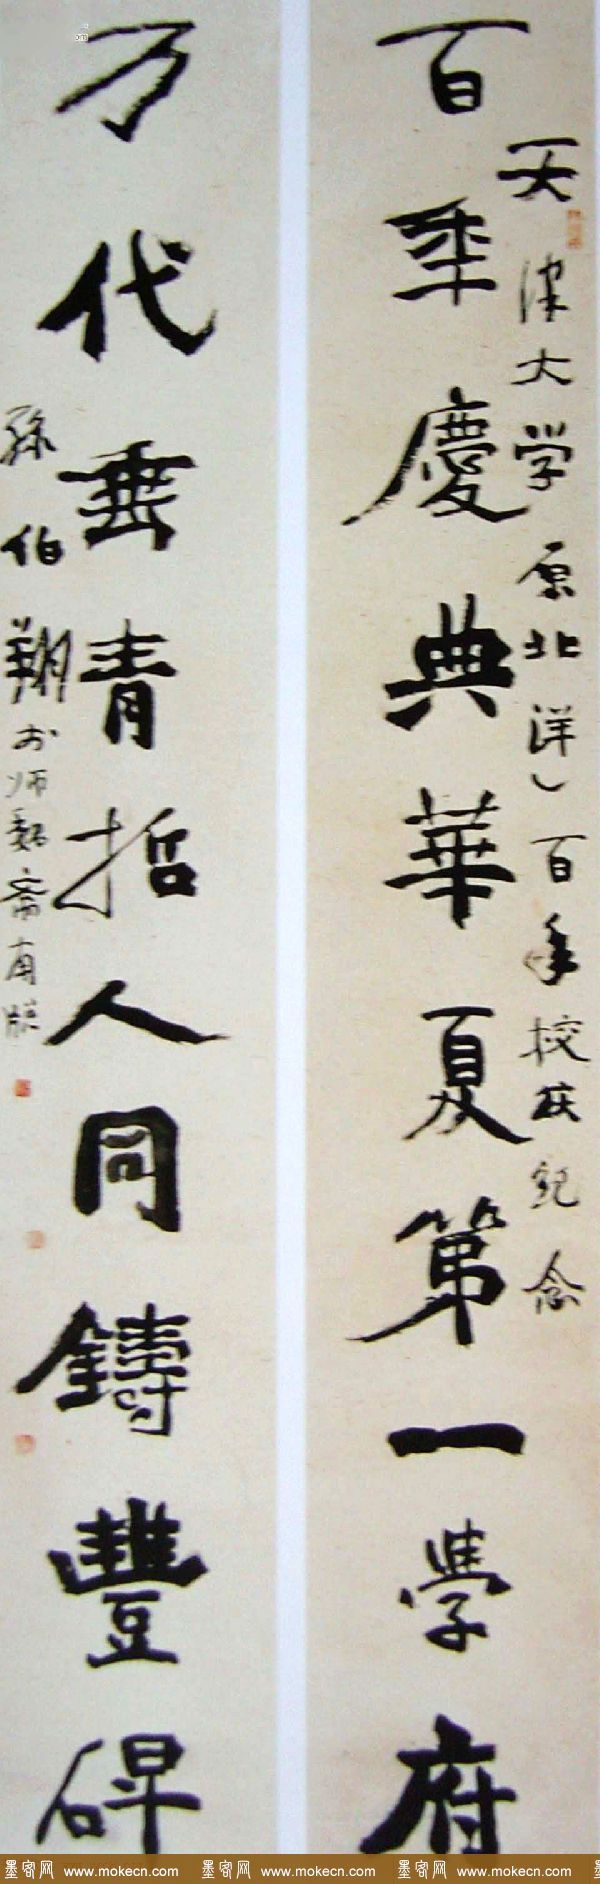 百年慶典華夏第一學府
天津大学（原北洋）百年校庆纪念
万代垂青哲人同鑄豐碑
孫伯翔于师魏斋南牕
墨客网 www.mokecn.com 墨客网 www.mokecn.com 墨客网 www.mokecn.com